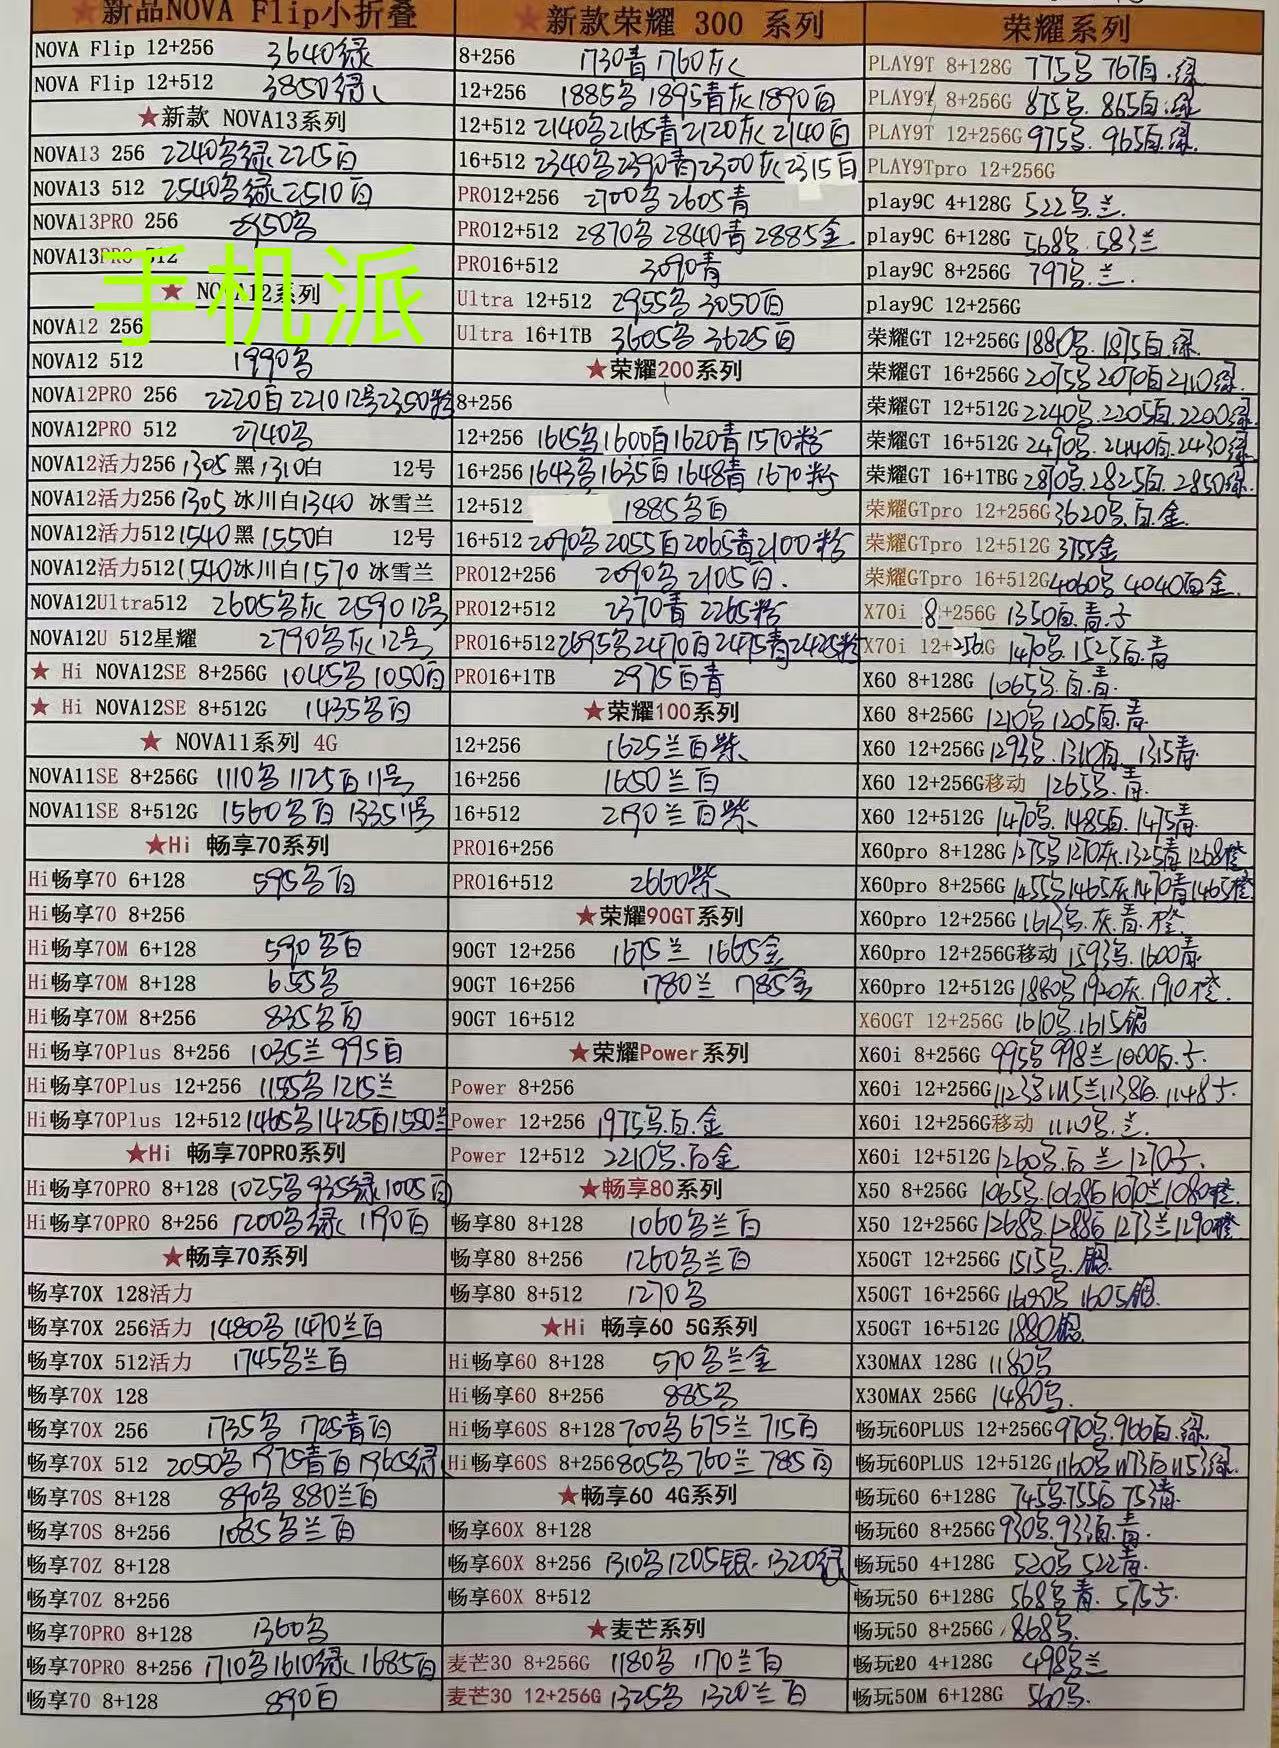 ★新品NOVA Flip小折叠
NOVA Flip 12+256 3640绿
NOVA Flip 12+512 3850绿
★新款 NOVA13系列
NOVA13 256 2240名绿2215白
NOVA13 512 2540名绿2510白
NOVA13PRO 256
NOVA13PRO 512
手机派
★ NOVA12系列
NOVA12 256
NOVA12 512 1990名
NOVA12PRO 256 2220白2210 12号2350粉
NOVA12PRO 512 2740名
NOVA12活力256 1305黑1310白 12号
NOVA12活力256 1305 冰川白1340 冰雪兰
NOVA12活力512 1540黑1550白 12号
NOVA12活力512 1540冰川白1570 冰雪兰
NOVA12Ultra512 2605名灰 2590 12号
NOVA12U 512星耀 2790名灰12号
★ Hi NOVA12SE 8+256G 1045名1050白
★ Hi NOVA12SE 8+512G 1435名白
★ NOVA11系列 4G
NOVA11SE 8+256G 1110名 1125白 11号
NOVA11SE 8+512G 1560名白 1335 11号
★Hi 畅享70系列
Hi畅享70 6+128 595名白
Hi畅享70 8+256
Hi畅享70M 6+128 590名白
Hi畅享70M 8+128 655名
Hi畅享70M 8+256 835名白
Hi畅享70Plus 8+256 1035兰 995白
Hi畅享70Plus 12+256 1185名1215兰
Hi畅享70Plus 12+512 1465名1425白1550兰
★Hi 畅享70PRO系列
Hi畅享70PRO 8+128 1025名935绿1005白
Hi畅享70PRO 8+256 1200名绿 1190白
★畅享70系列
畅享70X 128活力
畅享70X 256活力 1480名 1470兰白
畅享70X 512活力 1745名兰白
畅享70X 128
畅享70X 256 1735名 1725青白
畅享70X 512 2050名 1975青白 1965绿
畅享70S 8+128 890名 880兰白
畅享70S 8+256 1085名兰白
畅享70Z 8+128
畅享70Z 8+256
畅享70PRO 8+128 1360名
畅享70PRO 8+256 1710名1610绿 1685白
畅享70 8+128 890白
★新款荣耀 300 系列
8+256 1730青 1760灰
12+256 1885名 1895青灰1890白
12+512 2140名2165青2120灰 2140白
16+512 2340名2390青2300灰2315白
PRO12+256 2700名 2605青
PRO12+512 2870名 2840青 2885金
PRO16+512 3090青
Ultra 12+512 2955名 3050白
Ultra 16+1TB 3605名 3625白
★荣耀200系列
8+256
12+256 1615名1600白1620青1570粉
16+256 1643名1635白1648青 1670粉
12+512 1885名白
16+512 2090名2055白2065青2100粉
PRO12+256 2090名 2105白.
PRO12+512 2370青 2265粉
PRO16+512 2695名2470白2475青2425粉
PRO16+1TB 2975白青
★荣耀100系列
12+256 1625兰白紫
16+256 1650兰白
16+512 2190兰白紫
PRO16+256
PRO16+512 2660紫
★荣耀90GT系列
90GT 12+256 1675兰 1665金
90GT 16+256 1780兰 1785金
90GT 16+512
★荣耀Power系列
Power 8+256
Power 12+256 1975名.白.金
Power 12+512 2210名.白金
★畅享80系列
畅享80 8+128 1060名兰白
畅享80 8+256 1260名兰白
畅享80 8+512 1270名
★Hi 畅享60 5G系列
Hi畅享60 8+128 570名兰金
Hi畅享60 8+256 885名
Hi畅享60S 8+128 700名675兰 715白
Hi畅享60S 8+256 805名760兰785白
★畅享60 4G系列
畅享60X 8+128
畅享60X 8+256 1310名1205银.1320绿
畅享60X 8+512
★麦芒系列
麦芒30 8+256G 1180名 1170兰白
麦芒30 12+256G 1325名 1320兰白
荣耀系列
PLAY9T 8+128G 775名 767白.绿
PLAY9T 8+256G 875名.865白.绿
PLAY9T 12+256G 975名.965白.绿
PLAY9Tpro 12+256G
play9C 4+128G 522名.兰.
play9C 6+128G 568名.583兰
play9C 8+256G 797名.兰.
play9C 12+256G
荣耀GT 12+256G 1880名.1875白.绿
荣耀GT 16+256G 2075名2070白2110绿.
荣耀GT 12+512G 2240名.2205白.2200绿
荣耀GT 16+512G 2490名.2440白.2430绿
荣耀GT 16+1TBG 2870名.2825白.2850绿.
荣耀GTpro 12+256G 3620名.白.金
荣耀GTpro 12+512G 3755金
荣耀GTpro 16+512G 4060名 4040白金
X70i 8+256G 1350白.青
X70i 12+256G 1470名.1525白.青
X60 8+128G 1065名.白.青.
X60 8+256G 1210名1205白.青.
X60 12+256G 1293名.1310白.1315青.
X60 12+256G移动 1265名.青.
X60 12+512G 1470名.1485白.1475青.
X60pro 8+128G 1275名1270灰.1325青1268橙
X60pro 8+256G 1455名1465灰1470青1465橙
X60pro 12+256G 1613名.灰.青.橙
X60pro 12+256G移动 1593名.1600青
X60pro 12+512G 1880名1920灰.1910橙.
X60GT 12+256G 1610名.1615银
X60i 8+256G 995名998兰1000白.
X60i 12+256G
X60i 12+256G移动 1110名.兰.
X60i 12+512G 1260名.白兰1270
X50 8+256G 1065名.1068白1070兰1080橙.
X50 12+256G 1268名.1288白1273兰1290橙.
X50GT 12+256G 1515名.银.
X50GT 16+256G 1605银.
X50GT 16+512G 1880银.
X30MAX 128G 1180名
X30MAX 256G 1480名.
畅玩60PLUS 12+256G 970名.966白.绿.
畅玩60PLUS 12+512G 1160名1173白1153绿.
畅玩60 6+128G 745名.755白 753青.
畅玩60 8+256G 930名.933白.青.
畅玩50 4+128G 520名 522青.
畅玩50 6+128G 568名青.
畅玩50 8+256G 868名.
畅玩20 4+128G 498名兰
畅玩50M 6+128G 560名.